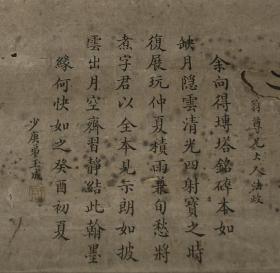 翁尊兄大人法政
余向得塼塔銘碎本如
缺月隱雲清光四射寶之時
復展玩仲夏積雨兼旬愁將
煮字君以全本見示朗如披
雲出月空齋習靜結此翰墨
緣何快如之癸酉初夏
少庚弟王